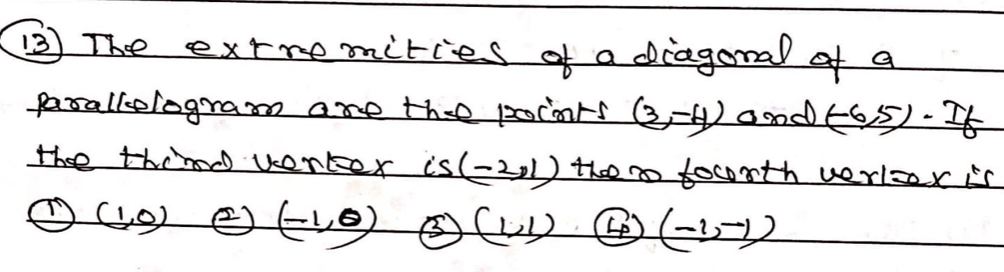 13) The extremities of a diagonal of a
parallelogram are the points (3,-4) and (-6,5). If
the third vertex is (-2,1) then fourth vertex is
① (1,0) ② (-1,0) ③ (1,1) ④ (-1,-1)